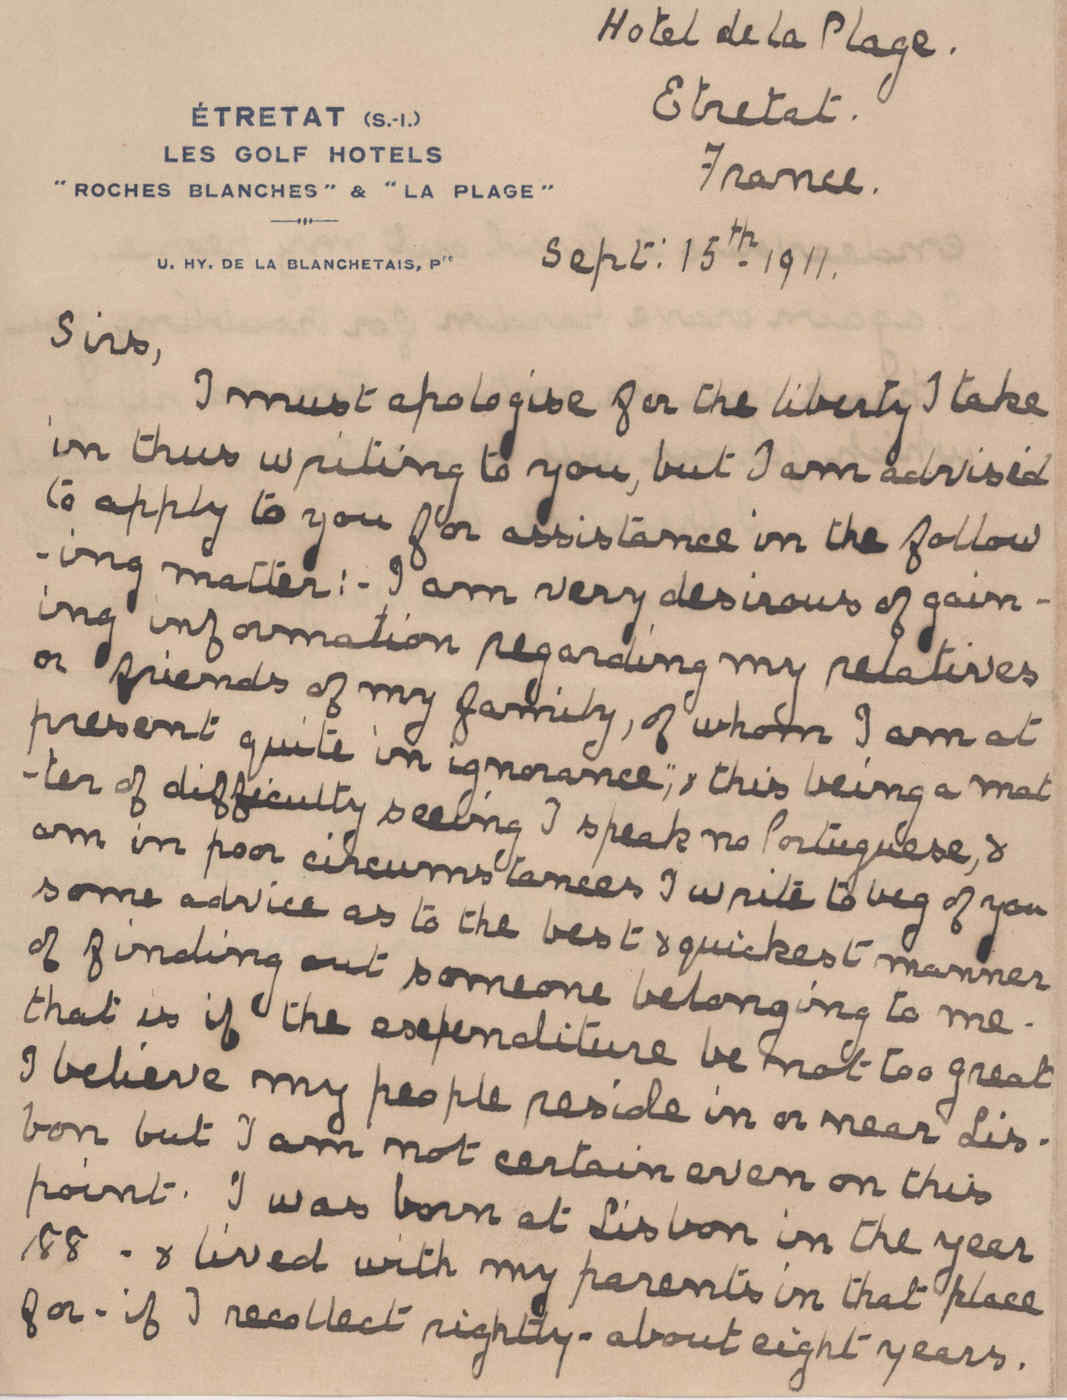 Hotel de la Plage.
Etretat.
France.
ÉTRETAT (S.-I.)
LES GOLF HOTELS
"ROCHES BLANCHES" & "LA PLAGE"
U. HY. DE LA BLANCHETAIS, Pre
Sept: 15th 1911.
Sirs,
I must apologise for the liberty I take
in thus writing to you, but I am advised
to apply to you for assistance in the follow
-ing matter:- I am very desirous of gain-
ing information regarding my relatives
or friends of my family, of whom I am at
present quite in ignorance, & this being a mat
-ter of difficulty seeing I speak no Portuguese, &
am in poor circumstances I write to beg of you
some advice as to the best & quickest manner
of finding out someone belonging to me.
that is if the expenditure be not too great
I believe my people reside in or near Lis-
bon but I am not certain even on this
point. I was born at Lisbon in the year
188 - & lived with my parents in that place
for - if I recollect rightly - about eight years.